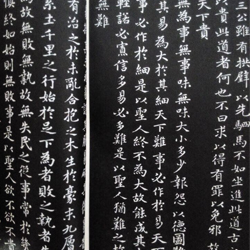 雖拱以駟馬不如坐進此道
以貴此道者何也不曰求以得有罪以免邪故
天下貴
為無為事無事味無味大小多少報怨以德圖
其易為大於其細天下難事必作於易天下
事必作於細是以聖人終不為大故能成其
輕諾必寡信多易必多難是以聖人猶難
有治之於未亂合抱之木生於豪末九層
土千里之行始於足下為者敗之執者
故無敗無執故無失民之從事常於
慎終如始則無敗事是以聖人欲不欲不